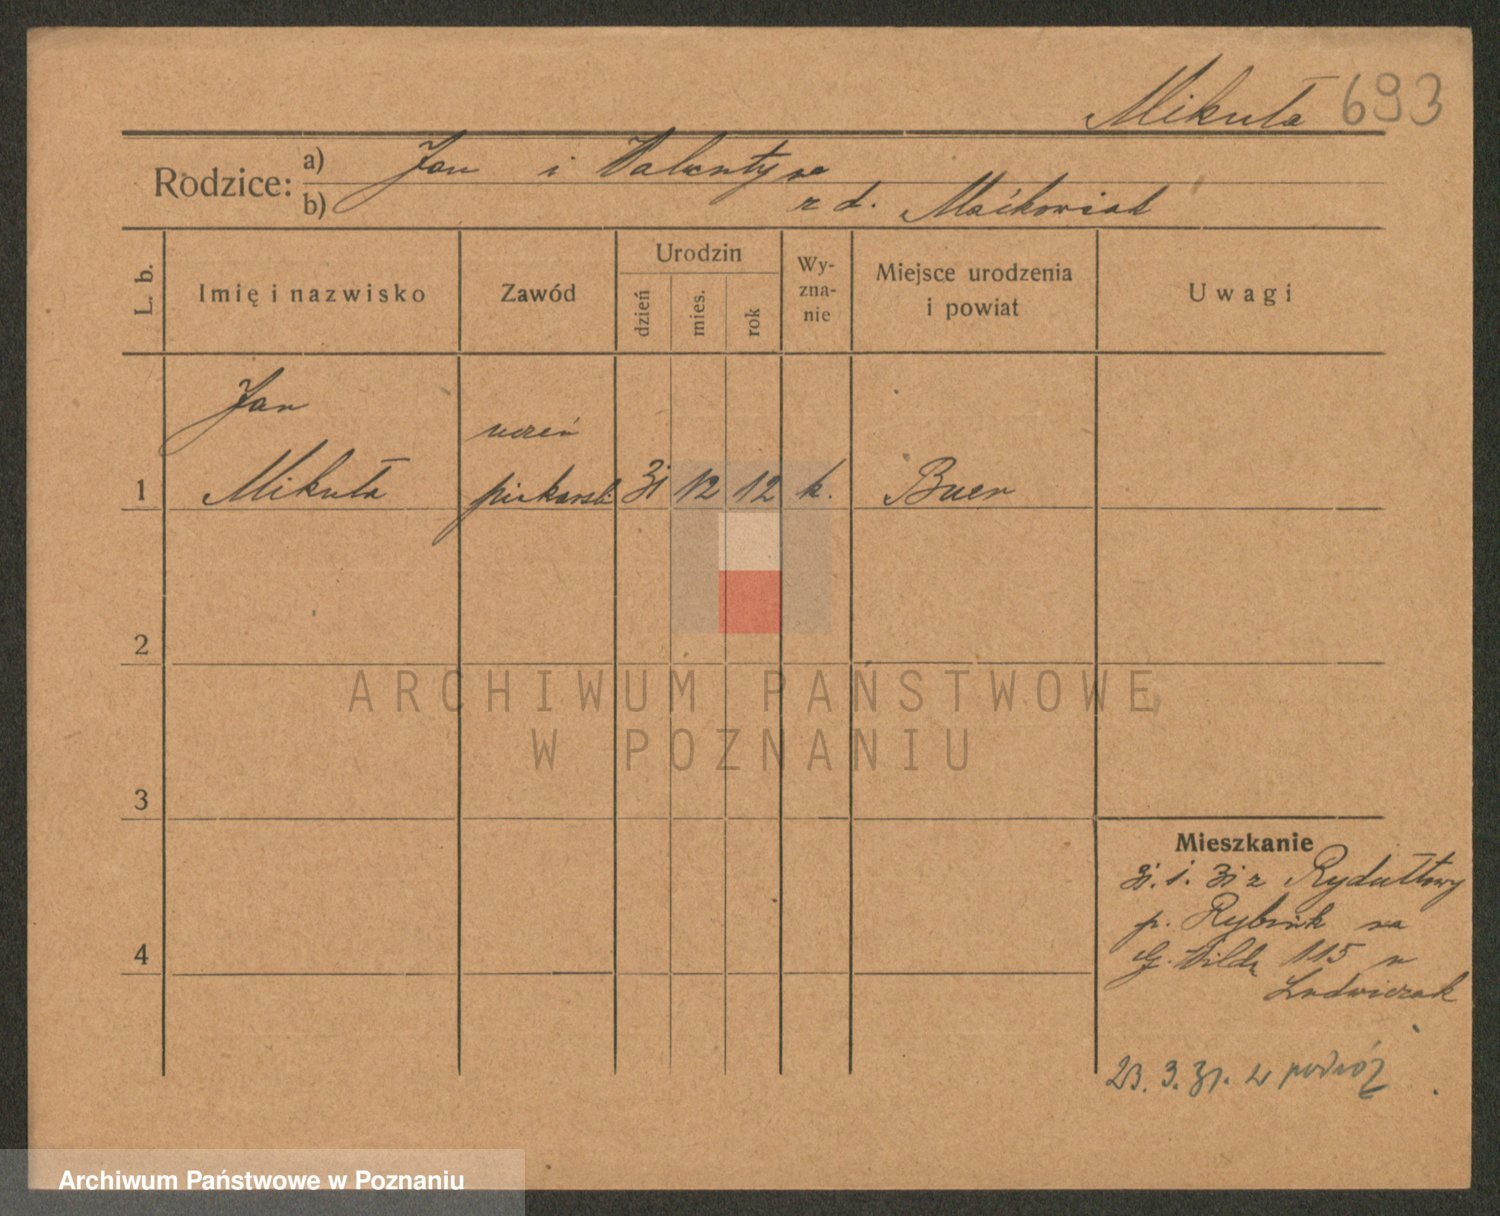 Mikuła 693
Rodzice: a) Jan i Walentyna
b) z d. Maćkowiak
L. b.
Imię i nazwisko
Zawód
Urodzin
dzień
mies.
rok
Wy-
zna-
nie
Miejsce urodzenia
i powiat
Uwagi
Jan
uczeń
1 Mikuła piekarski 31 12 12 k. Buer
2
ARCHIWUM PAŃSTWOWE
W POZNANIU
3
Mieszkanie
31. 1. 31 z Rydułtowy
p. Rybnik na
G. Wildę 115 u
4
Ludwiczak
23. 3. 31. w podróż
Archiwum Państwowe w Poznaniu